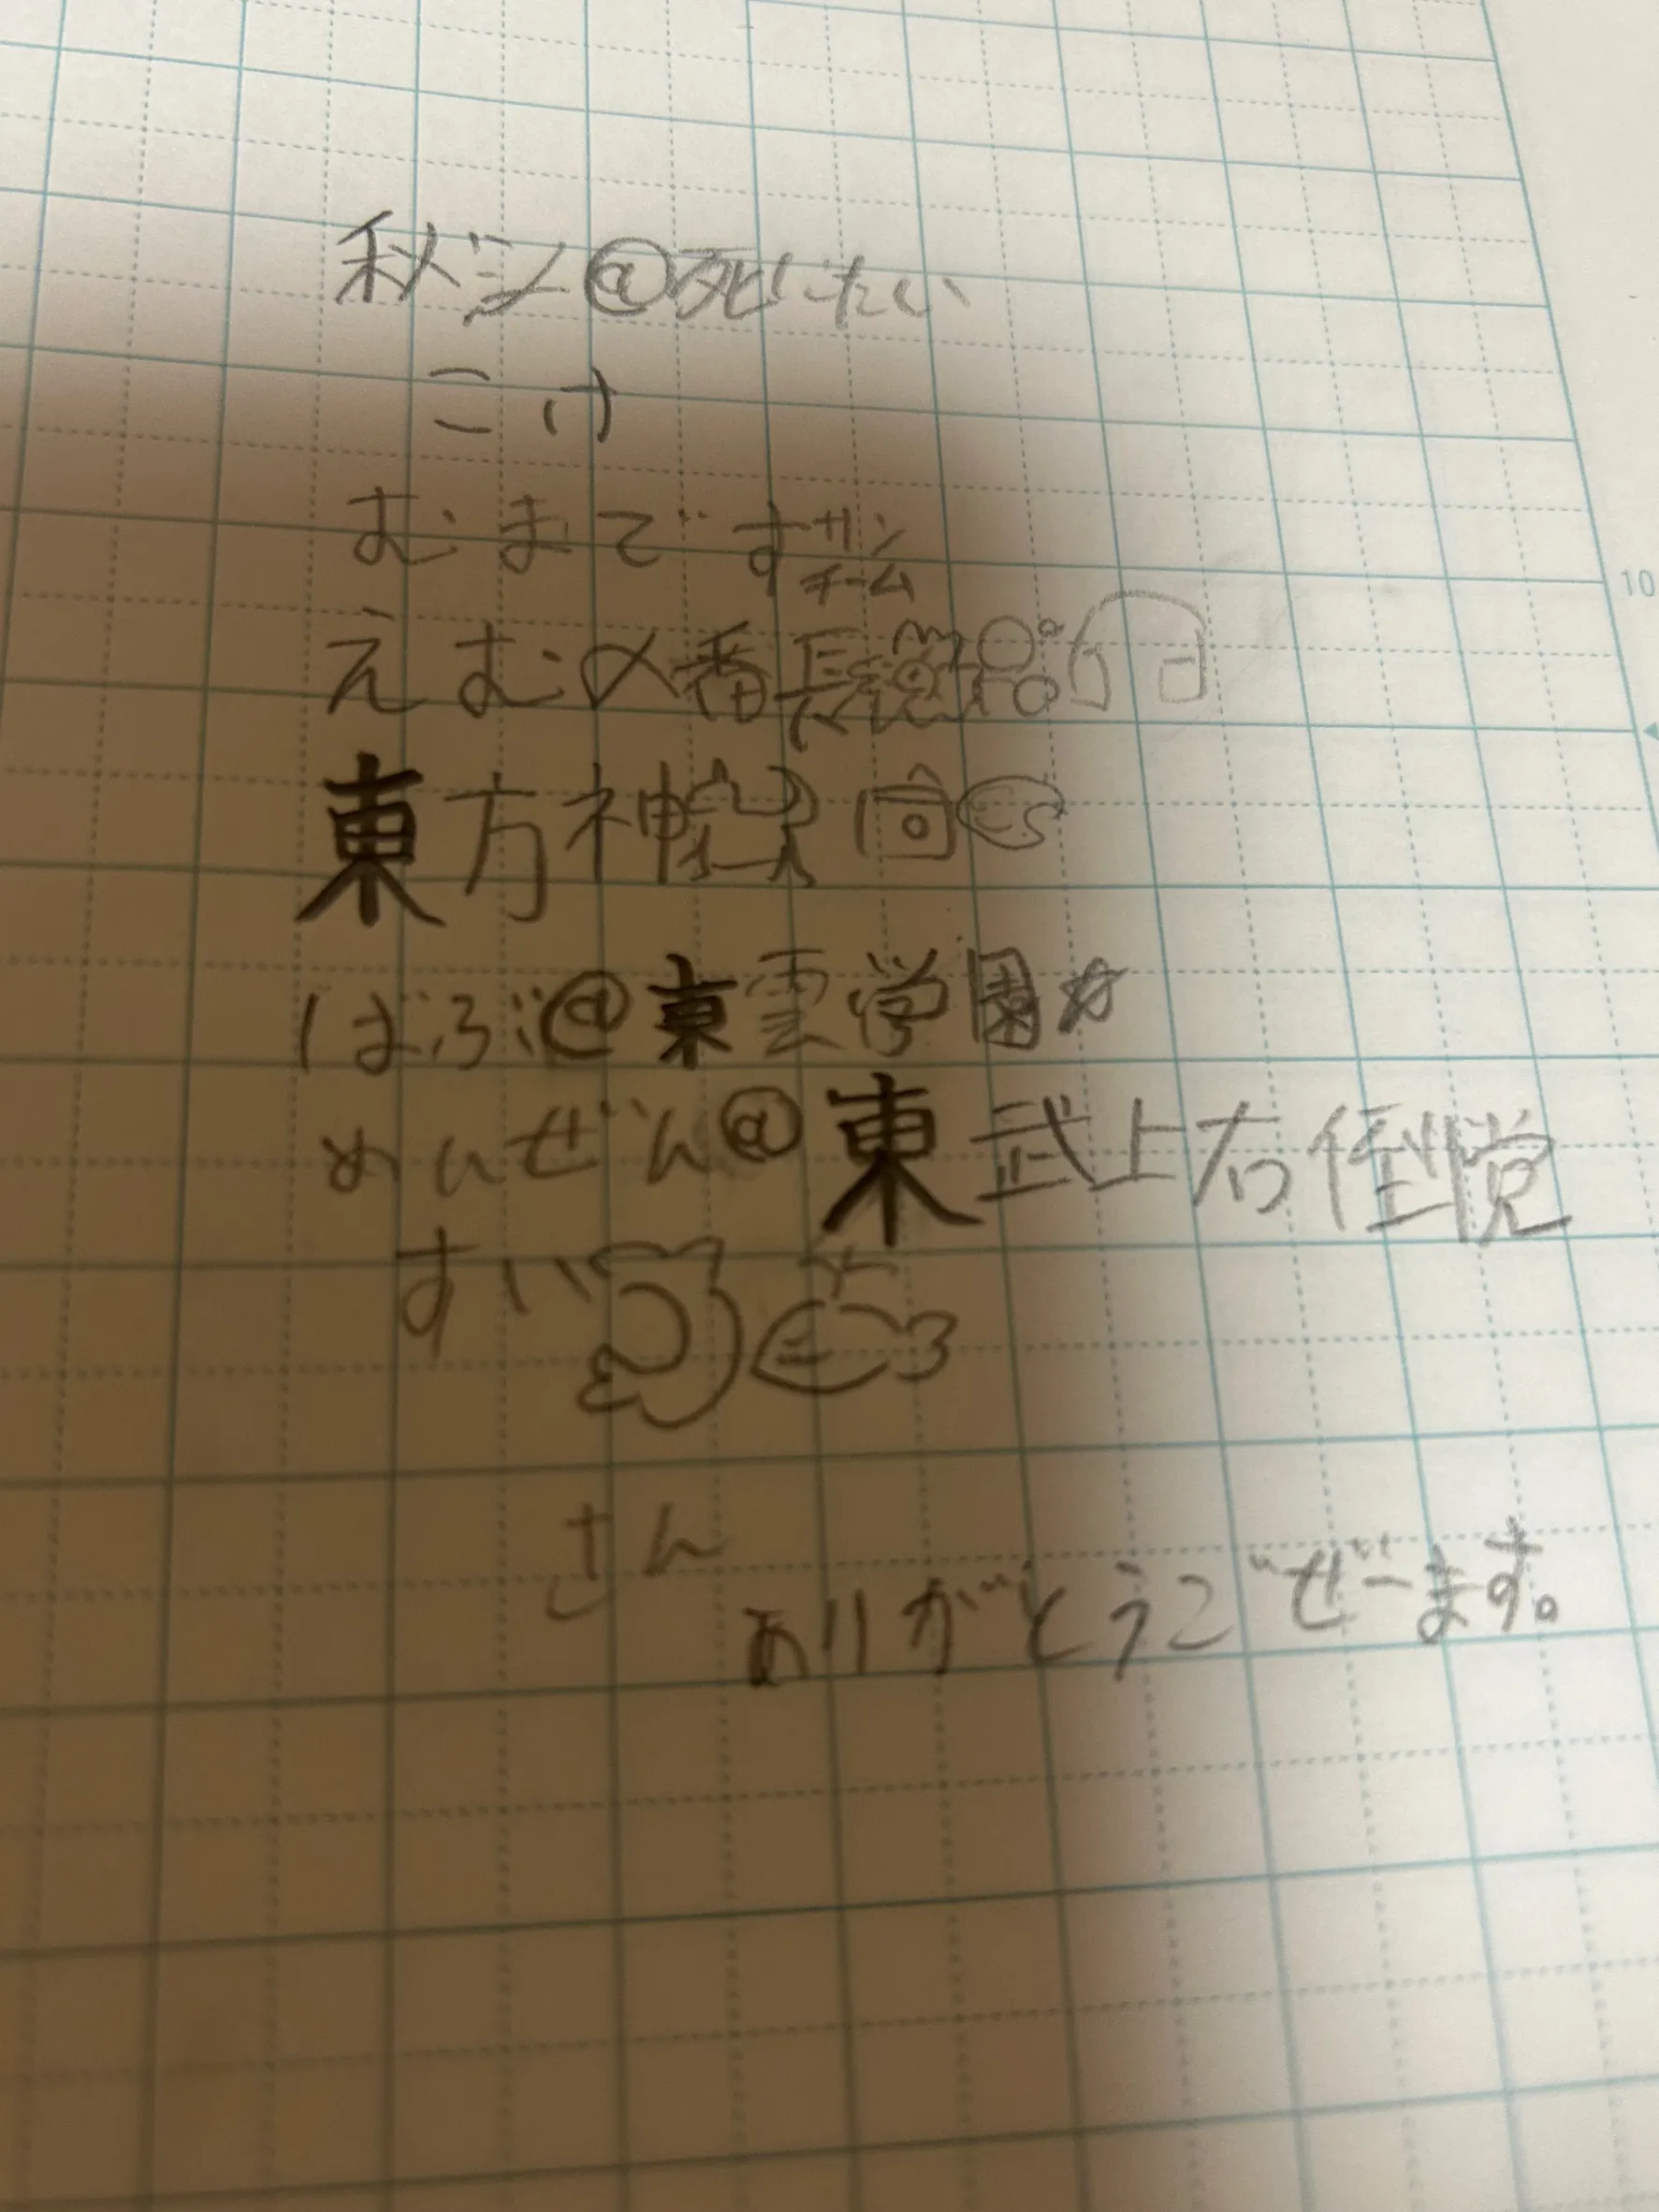 秋ジン@死にたい
こけ
むまですサンチーム
えむ〆番長
東方神
ばぶ@東雲学園
めんぜん@東武上右倒党
すい
さん
ありがとうごぜーます。